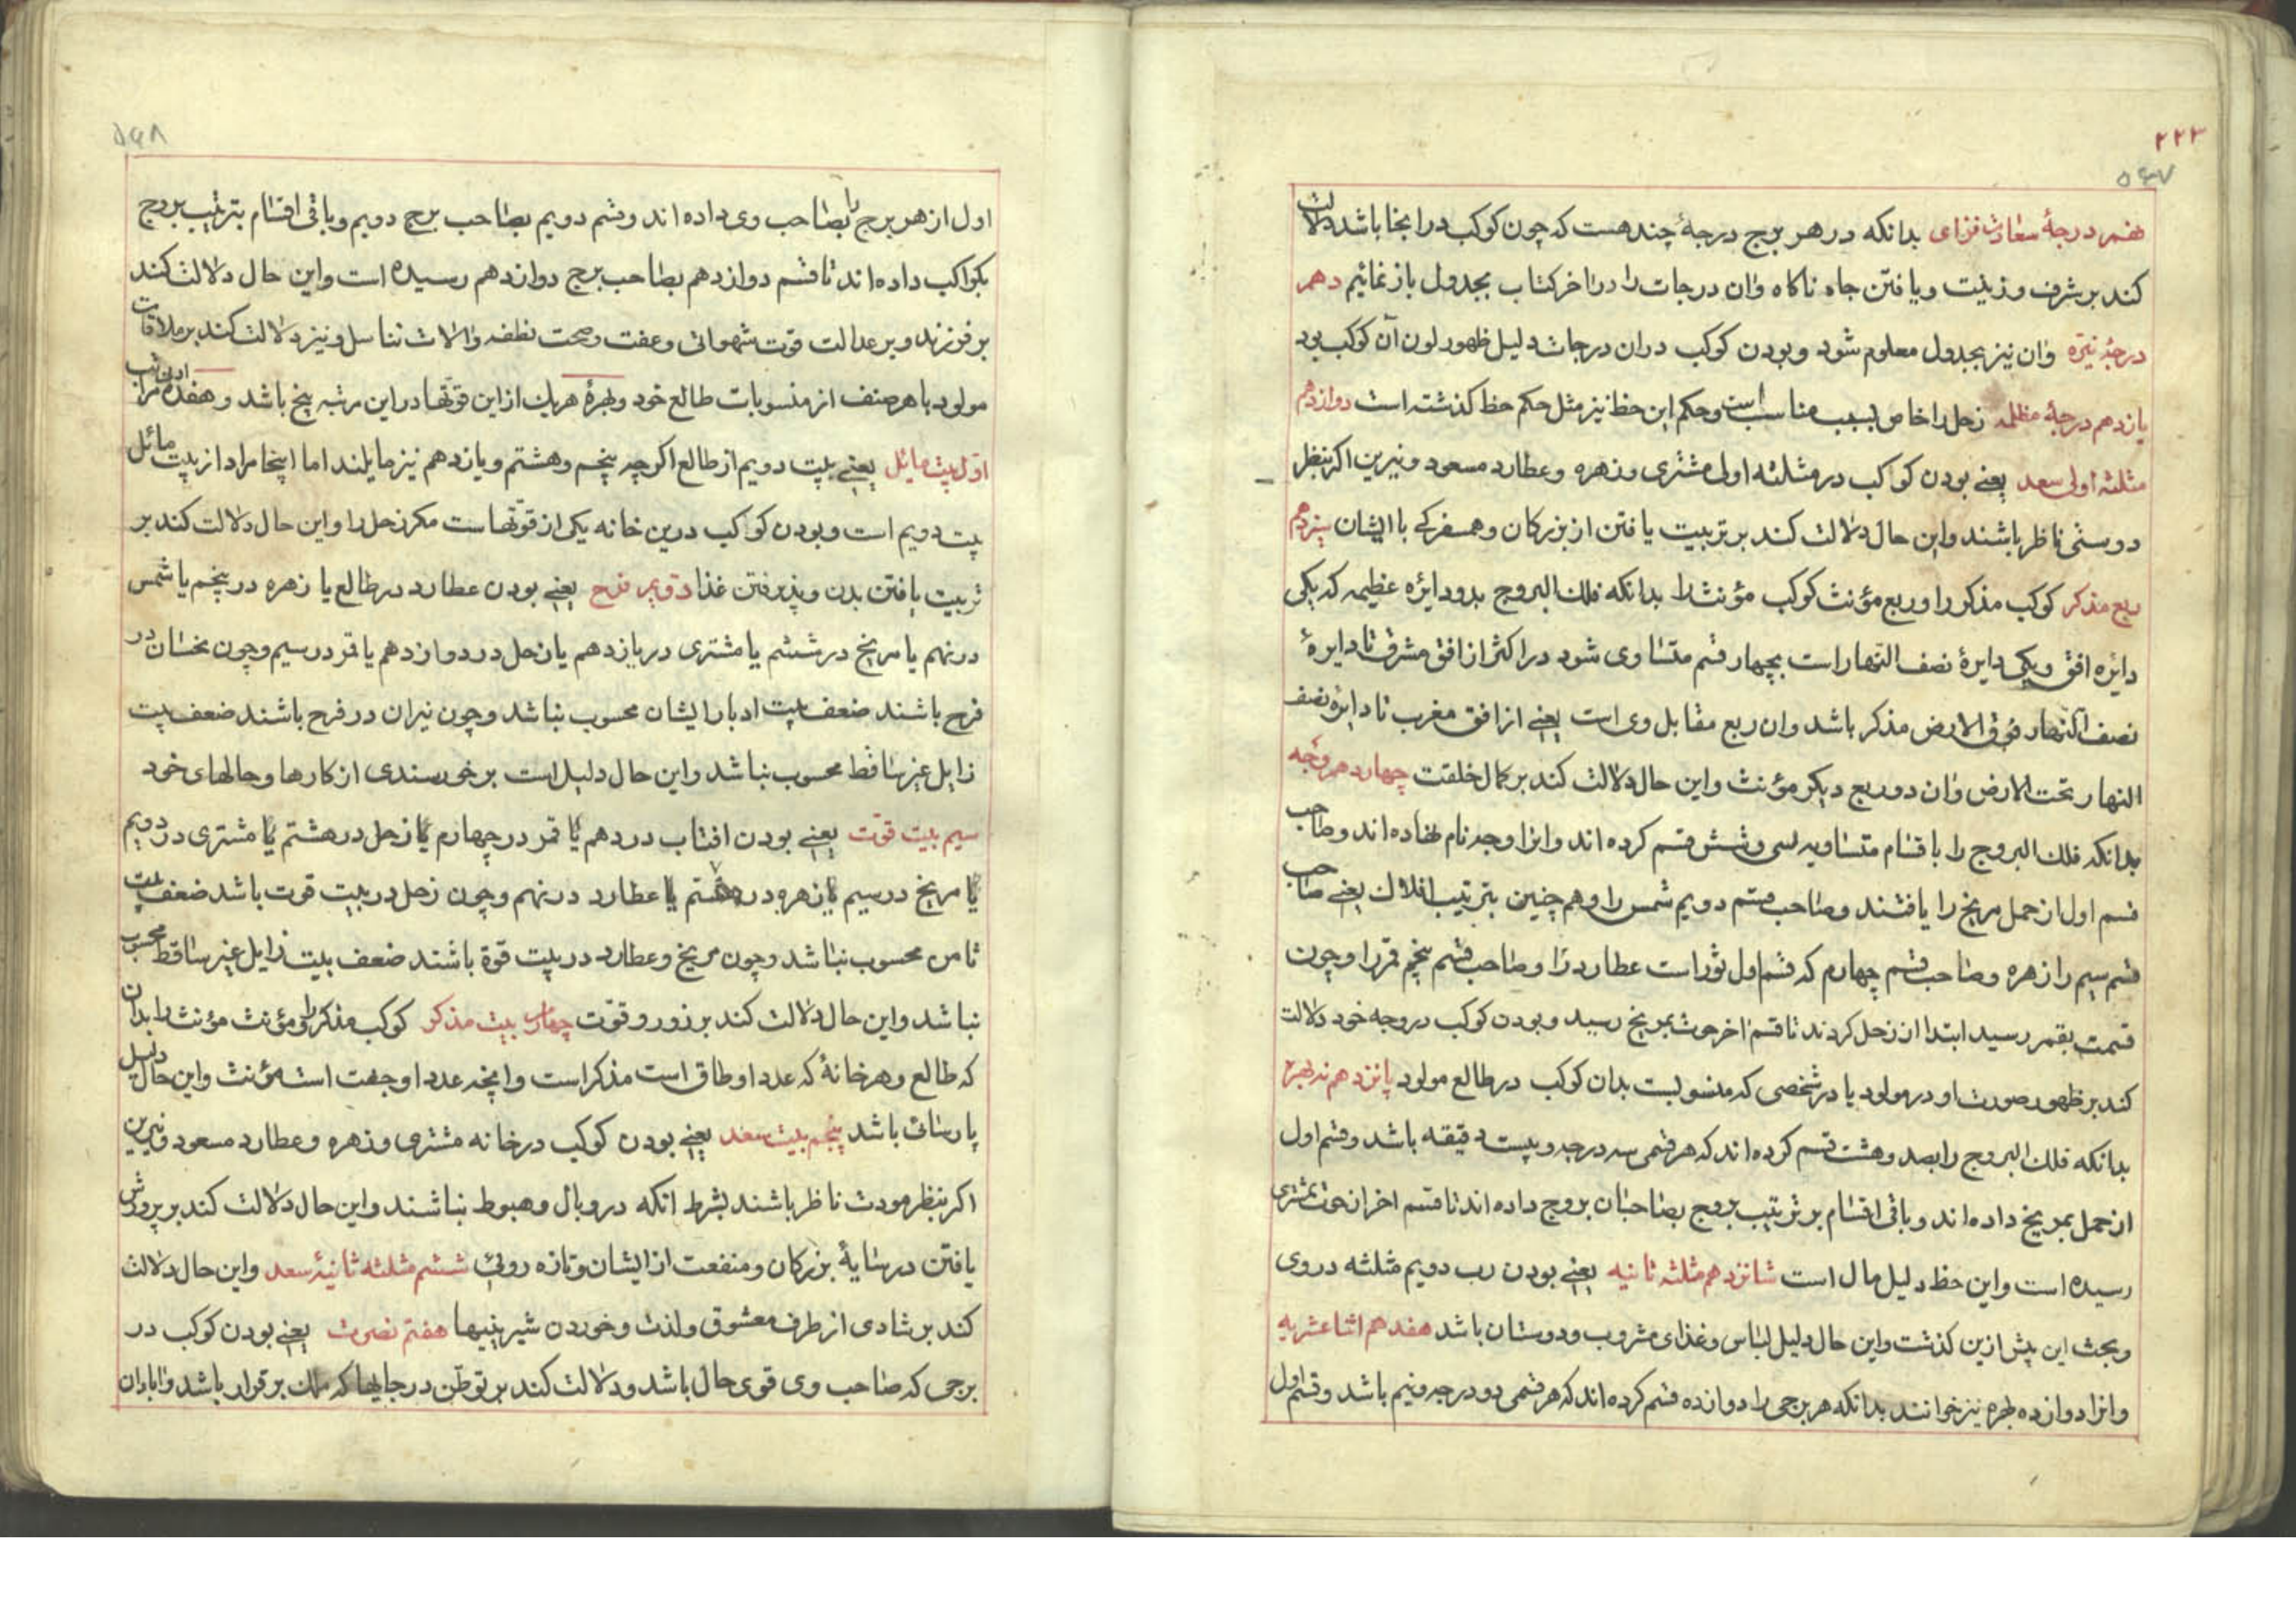 ۲۲۳
۵۴۷
نهم درجهٔ سعادت فزای بدانکه در هر برج درجهٔ چند هست که چون کوکب در اینجا باشد دلالت
کند بر شرف و زینت و یافتن جاه ناکاه وان درجات را در اخر کتاب بجدول باز نمائیم دهم
درجهٔ نیّره وان نیز بجدول معلوم شود و بودن کوکب دران درجات دلیل ظهور لون آن کوکب بود
یازدهم درجهٔ مظلمه زحل را خاص بسبب مناسبت است وحکم این حظ نیز مثل حکم حظ کذشته است دوازدهم
مثلثه اولی سعد یعنے بودن کواکب در مثلثه اولی مشتری وزهره وعطارد مسعود ونیرین اکر بنظر
دوستی ناظر باشند واین حال دلالت کند بر تربیت یافتن از بزرکان وهمسفرکے با ایشان سیزدهم
ربع مذکر کوکب مذکر را وربع مؤنث کوکب مؤنث را بدانکه فلك البروج بدو دایره عظیمه که یکی
دایره افق ویکی دایرهٔ نصف النهار است بچهار قسم متساوی شود در اکثر از افق مشرق تا دایرهٔ
نصف النهار فوق الارض مذکر باشد وان ربع مقابل وی است یعنے از افق مغرب تا دایره نصف
النهار تحت الارض وان دو ربع دیکر مؤنث واین حال دلالت کند بر کمال خلقت چهاردهم وجه
بدانکه فلك البروج را باقسام متساویه بسی وشش قسم کرده اند وانرا وجه نام نهاده اند وصاحب
قسم اول از حمل مریخ را یافتند وصاحب قسم دویم شمس را وهم چنین بترتیب افلاك یعنے صاحب
قسم سیم را زهره وصاحب قسم چهارم که قسم اول ثور است عطارد را وصاحب قسم پنجم قمر را وچون
قسمت بقمر رسید ابتدا از زحل کردند تا قسم اخر حوت بمریخ رسید وبودن کوکب در وجه خود دلالت
کند بر ظهور صورت او در مولود یا در شخصی که منسوبست بدان کوکب در طالع مولود پانزدهم نه بهره
بدانکه فلك البروج را بصد وهشت قسم کرده اند که هر قسمی سه درجه وبیست دقیقه باشد وقسم اول
از حمل بمریخ داده اند وباقی اقسام بر ترتیب بروج بصاحبان بروج داده اند تا قسم اخر از حوت بمشتری
رسیده است واین حظ دلیل مال است شانزدهم مثلثه ثانیه یعنے بودن رب دویم مثلثه در وی
وبحث این پیش ازین کذشت واین حال دلیل لباس وغذای مشروب ودوستان باشد هفدهم اثنا عشریه
وانرا دوازده بهره نیز خوانند بدانکه هر برجی را دوازده قسم کرده اند که هر قسمی دو درجه ونیم باشد وقسم اول
۵۴۸
اول از هر برج را بصاحب وی داده اند وقسم دویم بصاحب برج دویم وباقی اقسام بترتیب بروج
بکواکب داده اند تا قسم دوازدهم بصاحب برج دوازدهم رسیده است واین حال دلالت کند
بر فرزند وبر عدالت قوت شهوانی وعفت وصحت نطفه والات تناسل ونیز دلالت کند بر ملاقات
مولود با هر صنف از منسوبات طالع خود وبهرهٔ هریك از این قوتها در این رتبه پنج باشد وهفده مرا
اول بیت مایل یعنے بیت دویم از طالع اکرچه پنجم وهشتم ویازدهم نیز مایلند اما اینجا مراد از بیت مائل
بیت دویم است وبودن کواکب درین خانه یکی از قوتهاست مکر زحل را واین حال دلالت کند بر
تربیت یافتن بدن وپذیرفتن غذا دویم فرح یعنے بودن عطارد در طالع یا زهره در پنجم یا شمس
در نهم یا مریخ در ششم یا مشتری در یازدهم یا زحل در دوازدهم یا قمر در سیم وچون نحسان در
فرح باشند ضعف بیت ادبار ایشان محسوب نباشد وچون نیران در فرح باشند ضعف بیت
زایل غیر ساقط محسوب نباشد واین حال دلیل است بر خرسندی از کارها وحالهای خود
سیم بیت قوّت یعنے بودن افتاب در دهم یا قمر در چهارم یا زحل در هشتم یا مشتری در دویم
یا مریخ در سیم یا زهره در هفتم یا عطارد در نهم وچون زحل در بیت قوت باشد ضعف بیت
ثامن محسوب نباشد وچون مریخ وعطارد در بیت قوة باشند ضعف بیت زایل غیر ساقط محسوب
نباشد واین حال دلالت کند بر زور وقوّت چهارم بیت مذکر کوکب مذکر را ومؤنث مؤنث را بدان
که طالع وهر خانهٔ که عدد او طاق است مذکر است وانچه عدد او جفت است مؤنث واین حال دلیل
پارسائی باشد پنجم بیت سعد یعنے بودن کوکب در خانه مشتری وزهره وعطارد مسعود ونیرین
اکر بنظر مودت ناظر باشند بشرط انکه در وبال وهبوط نباشند واین حال دلالت کند بر پرورش
یافتن در سایهٔ بزرکان ومنفعت از ایشان وتازه روئی ششم مثلثه ثانیهٔ سعد واین حال دلالت
کند بر شادی از طرف معشوق ولذت وخوردن شیرینیها هفتم نصرت یعنے بودن کوکب در
برجی که صاحب وی قوی حال باشد ودلالت کند بر توطّن در جایها که ملك برقرار باشد وابادان